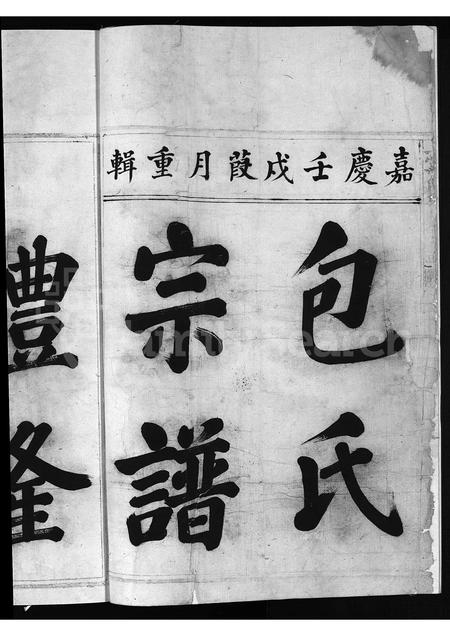 嘉慶壬戌葭月重輯
包氏
宗譜
豊隆